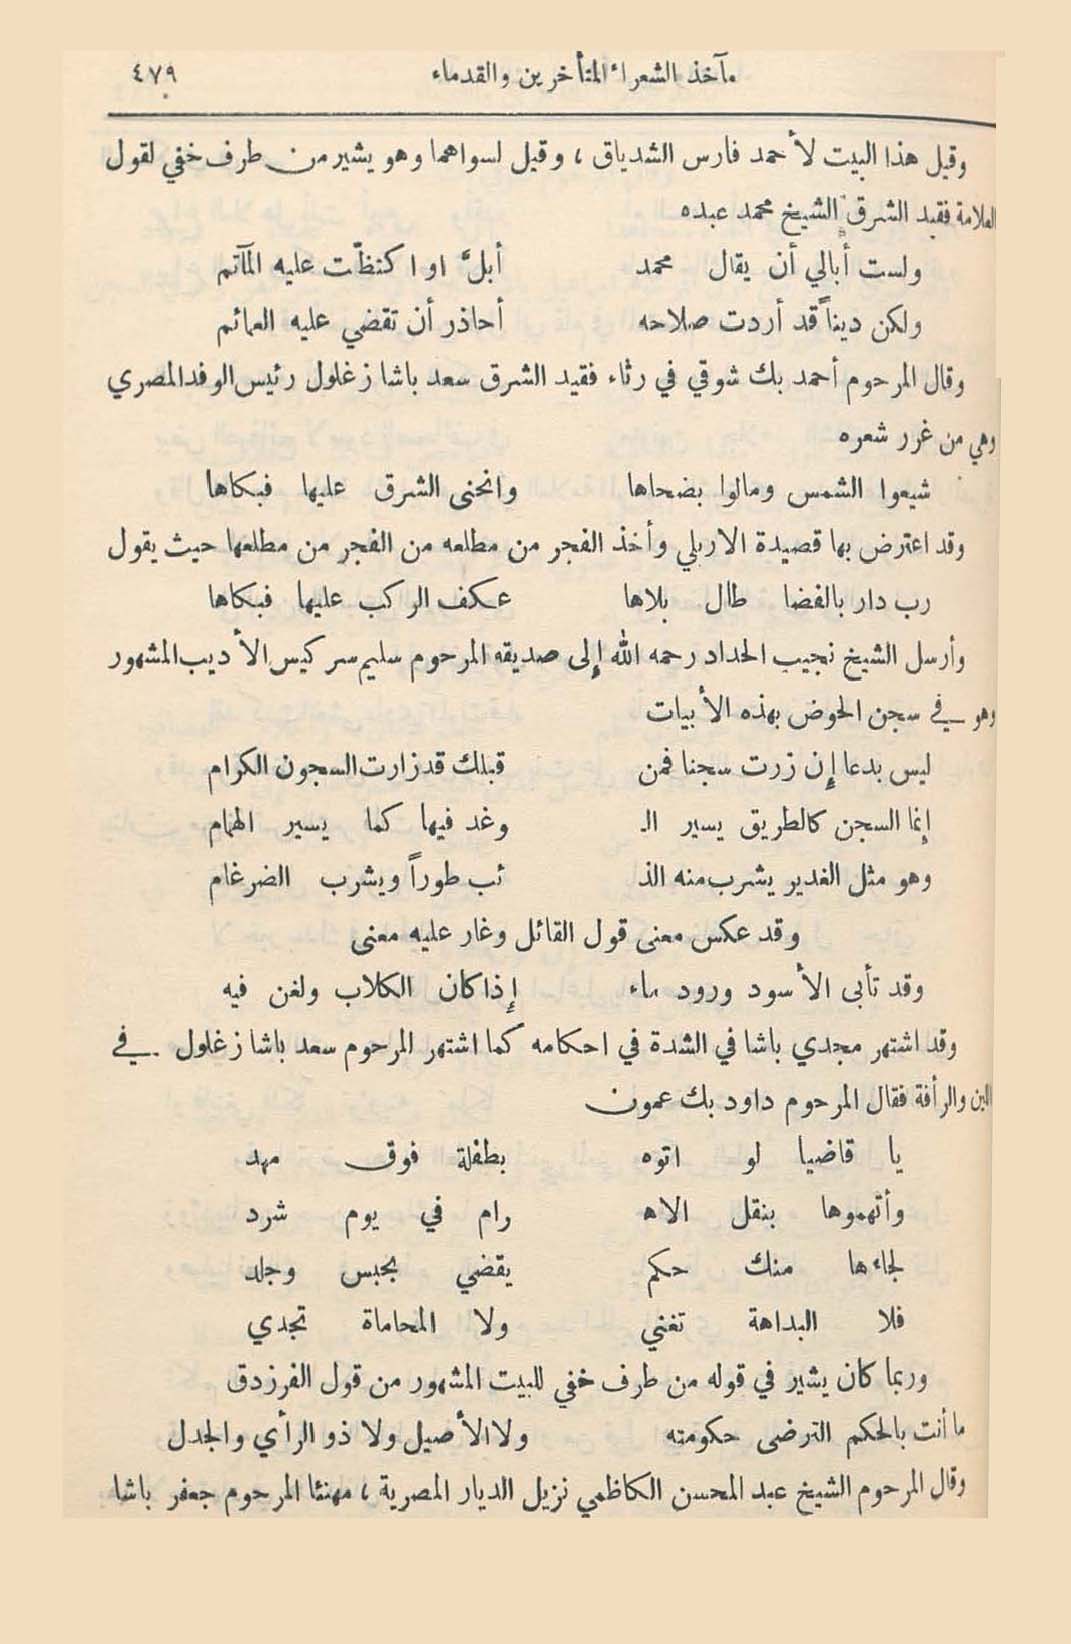 مآخذ الشعراء المتأخرين والقدماء ٤٧٩
وقيل هذا البيت لأحمد فارس الشدياق ، وقيل لسواهما وهو يشير من طرف خفي لقول
العلامة فقيد الشرق الشيخ محمد عبده
ولست أبالي أن يقال محمد أبلّ او اكتظّت عليه المآتم
ولكن ديناً قد أردت صلاحه أحاذر أن تقضي عليه العمائم
وقال المرحوم أحمد بك شوقي في رثاء فقيد الشرق سعد باشا زغلول رئيس الوفد المصري
وهي من غرر شعره
شيعوا الشمس ومالوا بضحاها وانحنى الشرق عليها فبكاها
وقد اعترض بها قصيدة الاربلي وأخذ الفجر من مطلعه من الفجر من مطلعها حيث يقول
رب دار بالفضا طال بلاها عكف الركب عليها فبكاها
وأرسل الشيخ نجيب الحداد رحمه الله إلى صديقه المرحوم سليم سركيس الأديب المشهور
وهو في سجن الحوض بهذه الأبيات
ليس بدعا إن زرت سجنا فمن قبلك قد زارت السجون الكرام
إنما السجن كالطريق يسير الـ وغد فيها كما يسير الهمام
وهو مثل الغدير يشرب منه الذ ئب طوراً ويشرب الضرغام
وقد عكس معنى قول القائل وغار عليه معنى
وقد تأبى الأسود ورود ماء إذا كان الكلاب ولغن فيه
وقد اشتهر مجدي باشا في الشدة في احكامه كما اشتهر المرحوم سعد باشا زغلول في
اللين والرأفة فقال المرحوم داود بك عمون
يا قاضيا لو اتوه بطفلة فوق مهد
وأتهموها بنقل الاه رام في يوم شرد
لجاءها منك حكم يقضي بحبس وجلد
فلا البداهة تغني ولا المحاماة تجدي
وربما كان يشير في قوله من طرف خفي للبيت المشهور من قول الفرزدق
ما أنت بالحكم الترضى حكومته ولا الأصيل ولا ذو الرأي والجدل
وقال المرحوم الشيخ عبد المحسن الكاظمي نزيل الديار المصرية ، مهنئا المرحوم جعفر باشا